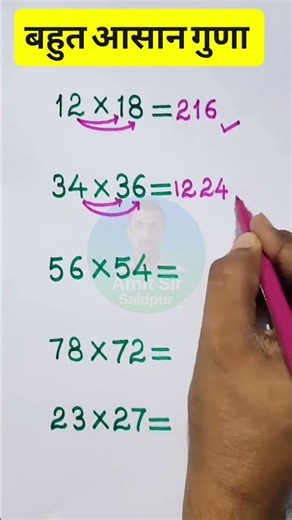 बहुत आसान गुणा
12×18=216
34×36=1224
Amit Sir
Saidpur
56×54=
78×72=
23×27=